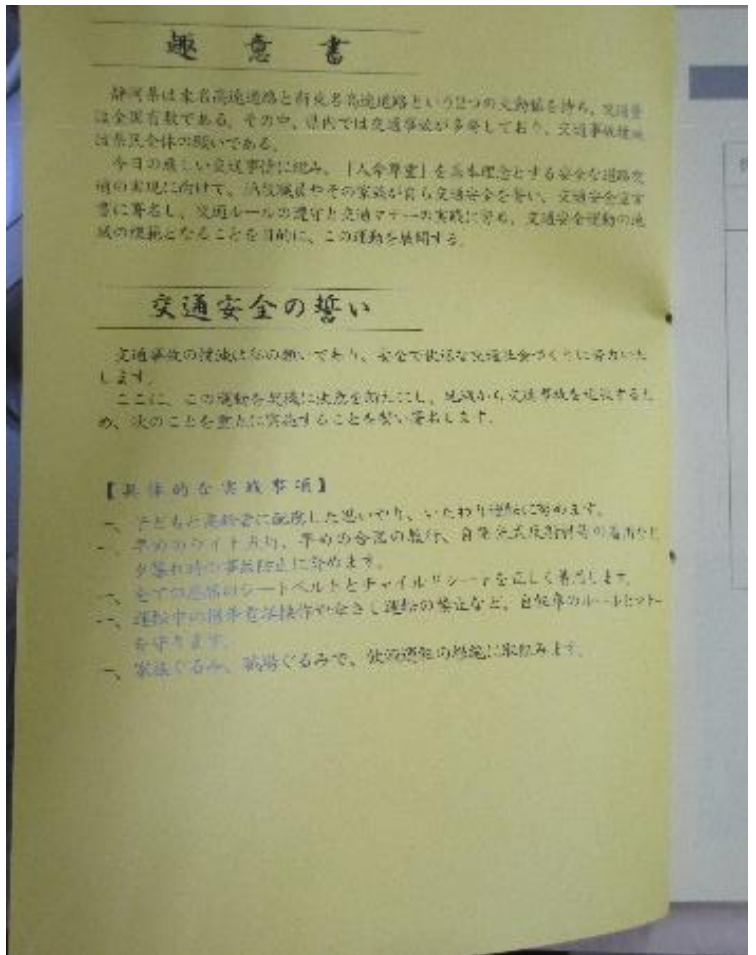 趣意書
静岡県は東名高速道路と新東名高速道路という2つの大動脈を持ち、交通量
は全国有数である。その中、県内では交通事故が多発しており、交通事故撲滅
は県民全体の願いである。
今日の厳しい交通事情に鑑み、「人命尊重」を基本理念とする安全な道路交
通の実現に向けて、職員やその家族が自ら交通安全を誓い、交通安全宣言
書に署名し、交通ルールの遵守と交通マナーの実践に努め、交通安全運動の地
域の模範となることを目的に、この運動を展開する。
交通安全の誓い
交通事故の撲滅は私の願いであり、安全で快適な交通社会づくりに努力いた
します。
ここに、この運動を契機に決意を新たにし、地域から交通事故を撲滅するた
め、次のことを重点に実施することを誓い署名します。
【具体的な実践事項】
一、子どもと高齢者に配慮した思いやり、いたわり運転に努めます。
一、早めのライト点灯、早めの合図の励行、自発光式反射材等の着用など
夕暮れ時の事故防止に努めます。
一、全ての座席のシートベルトとチャイルドシートを正しく着用します。
一、運転中の携帯電話操作や傘さし運転の禁止など、自転車のルールとマナー
を守ります。
一、家族ぐるみ、職場ぐるみで、飲酒運転の根絶に取組みます。